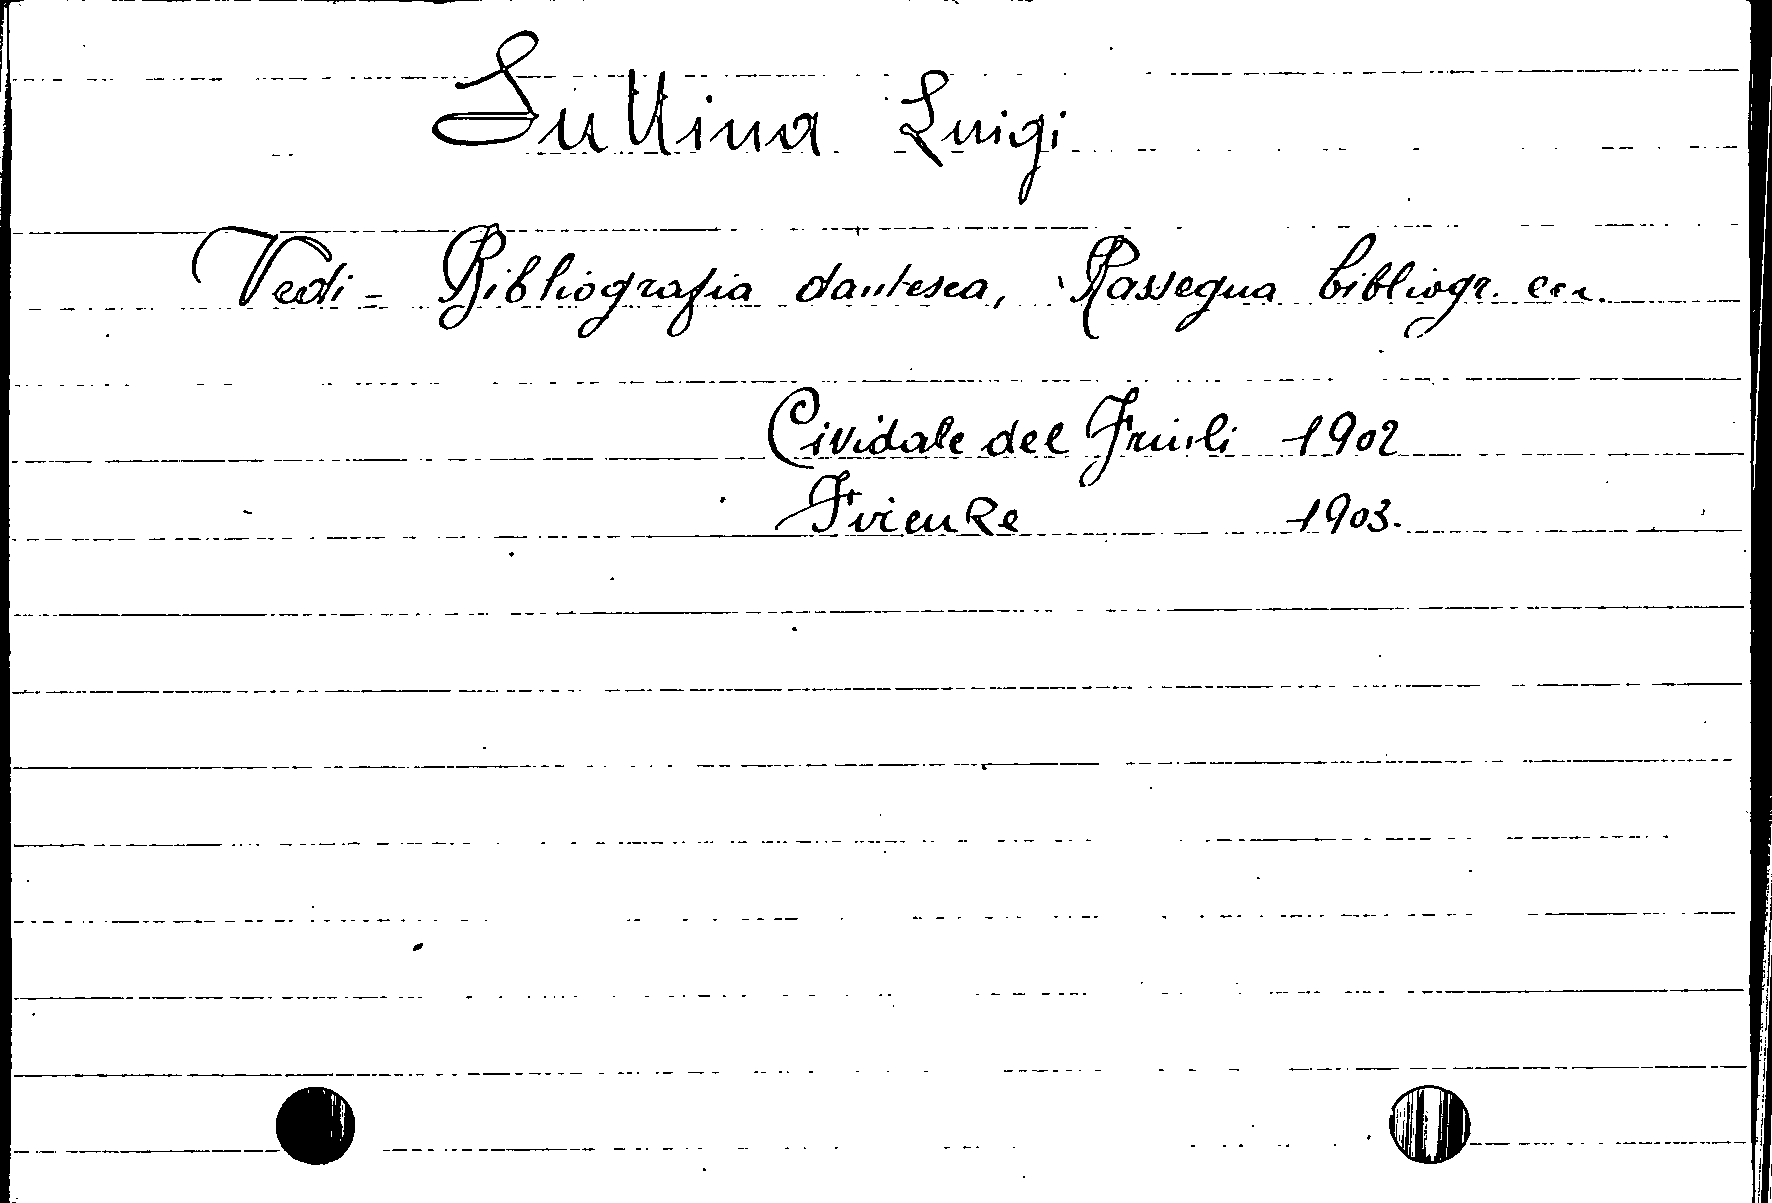 Suttina Luigi
Vedi = Bibliografia dantesca, Rassegna bibliogr. ecc.
Cividale del Friuli 1902
Firenze 1903.